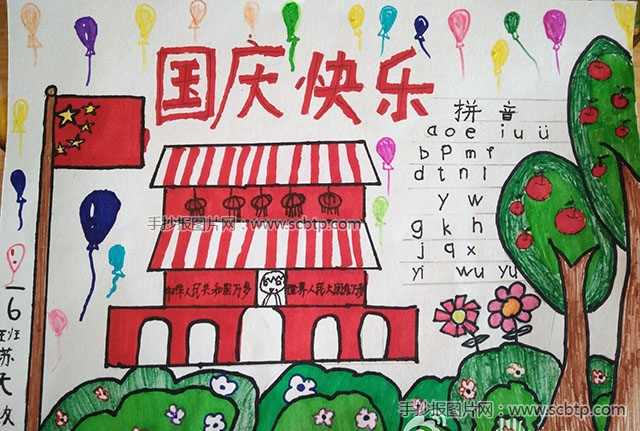 国庆快乐
拼音
a o e i u ü
b p m f
d t n l
y w
g k h
j q x
yi wu yu
手抄报图片网:www.scbtp.com
中华人民共和国万岁
世界人民大团结万岁
一6
班
苏
手抄报图片网:www.scbtp.com